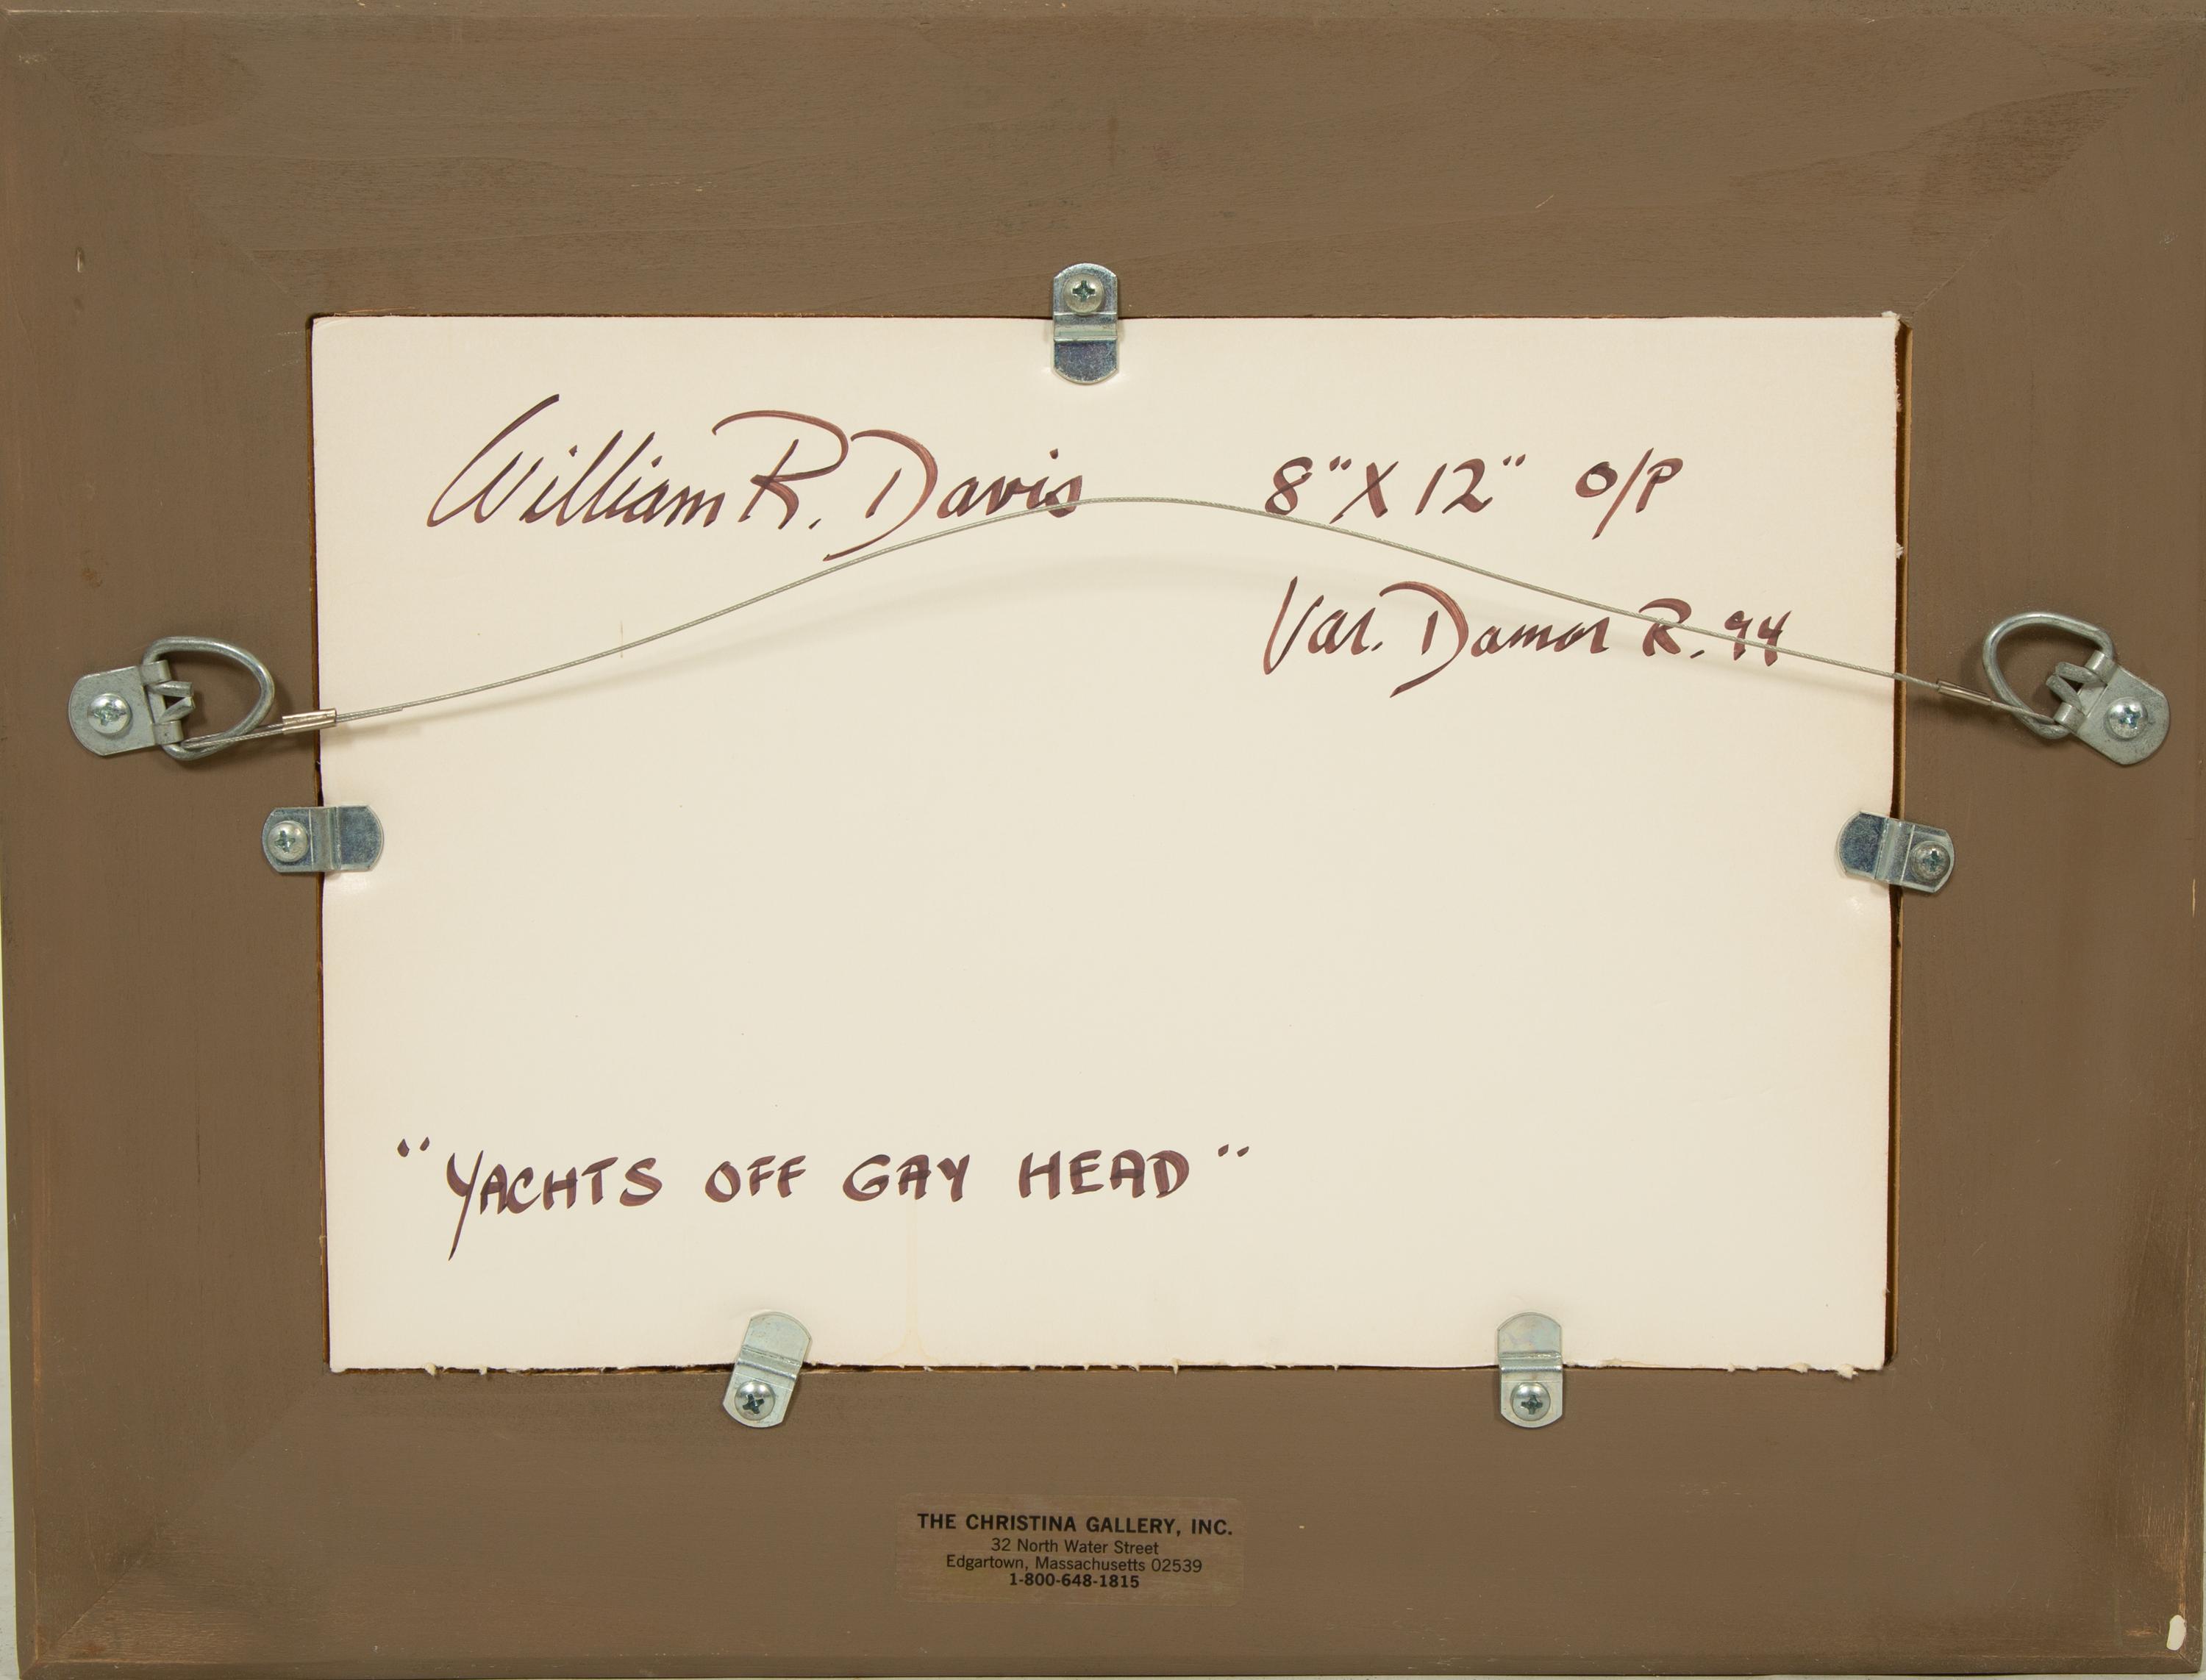 William R. Davis 8" X 12" O/P
Var. Damar R. 94
"YACHTS OFF GAY HEAD"
THE CHRISTINA GALLERY, INC.
32 North Water Street
Edgartown, Massachusetts 02539
1-800-648-1815